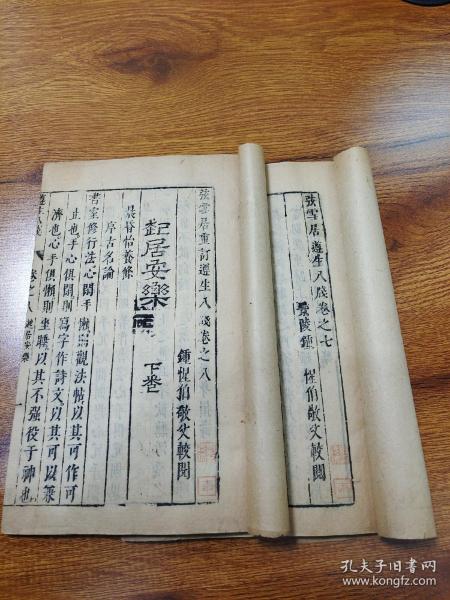 弦雪居遵生八牋卷之七
景陵鍾 惺伯敬父較閱
弦雪居重訂遵生八牋卷之八
鍾惺伯敬父較閱
起居安樂牋 下卷
晨昏怡養條
序古名論
書室修行法心閒手懶則觀法帖以其可作可
止也心手俱閒則寫字作詩文以其可以兼
濟也心手俱懶則坐睡以其不强役于神也
卷之八
起居安樂
孔夫子旧书网
www.kongfz.com